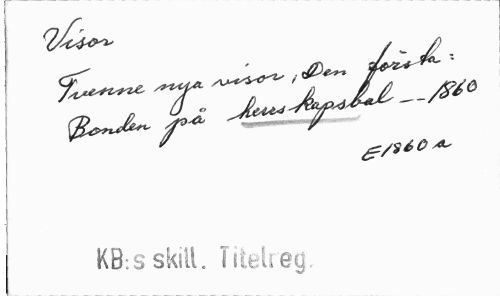 Visor
Tvenne nya visor, Den första:
Bonden på herrskapsbal -- 1860
E1860 a
KB:s skill. Titelreg.